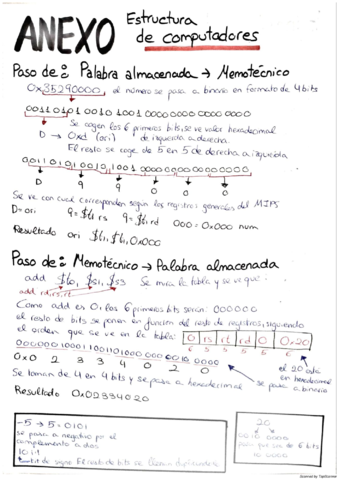 ANEXO
Estructura
de computadores
Paso de: Palabra almacenada → Memotécnico
0x35290000, el número se pasa a binario en formato de 4 bits
00110101 0010 1001 0000 0000 0000 0000
Se cogen los 6 primeros bits, se ve valor hexadecimal
D → 0xd (ori) de izquierda a derecha.
El resto se coge de 5 en 5 de derecha a izquierda
D 9 9 0 0 0
Se ve con cual corresponden según los registros generales del MIPS
D = ori 9 = $t1 rs 9 = $t1 rd 000 = 0x000 num
Resultado ori $t1, $t1, 0x000
Paso de: Memotécnico → Palabra almacenada
add $t0, $s1, $s3 Se mira la tabla y se ve que:
add rd, rs, rt
Como add es 0, los 6 primeros bits serán: 000000
el resto de bits se ponen en función del resto de registros, siguiendo
el orden que se ve en la tabla:
0 rs rt rd 0 0x20
6 5 5 5 5 6
el 20 está
en hexadecimal
se pasa a binario
0x0 2 3 3 4 0 2 0
Se toman de 4 en 4 bits y se pasa a hexadecimal
Resultado 0x02334020
-5 → 5 = 0101
se pasa a negativo por el
complemento a dos
1011
20
0010 0000
6 bits
10 0000